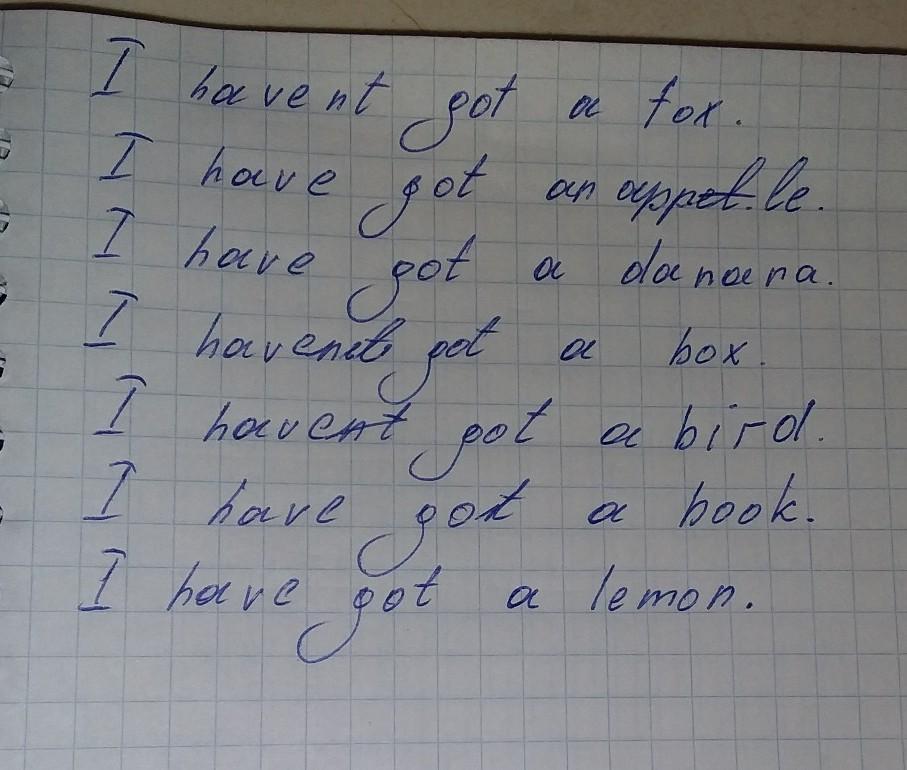 I havent got a fox.
I have got an apple.
I have got a danana.
I havent got a box.
I havent got a bird.
I have got a book.
I have got a lemon.